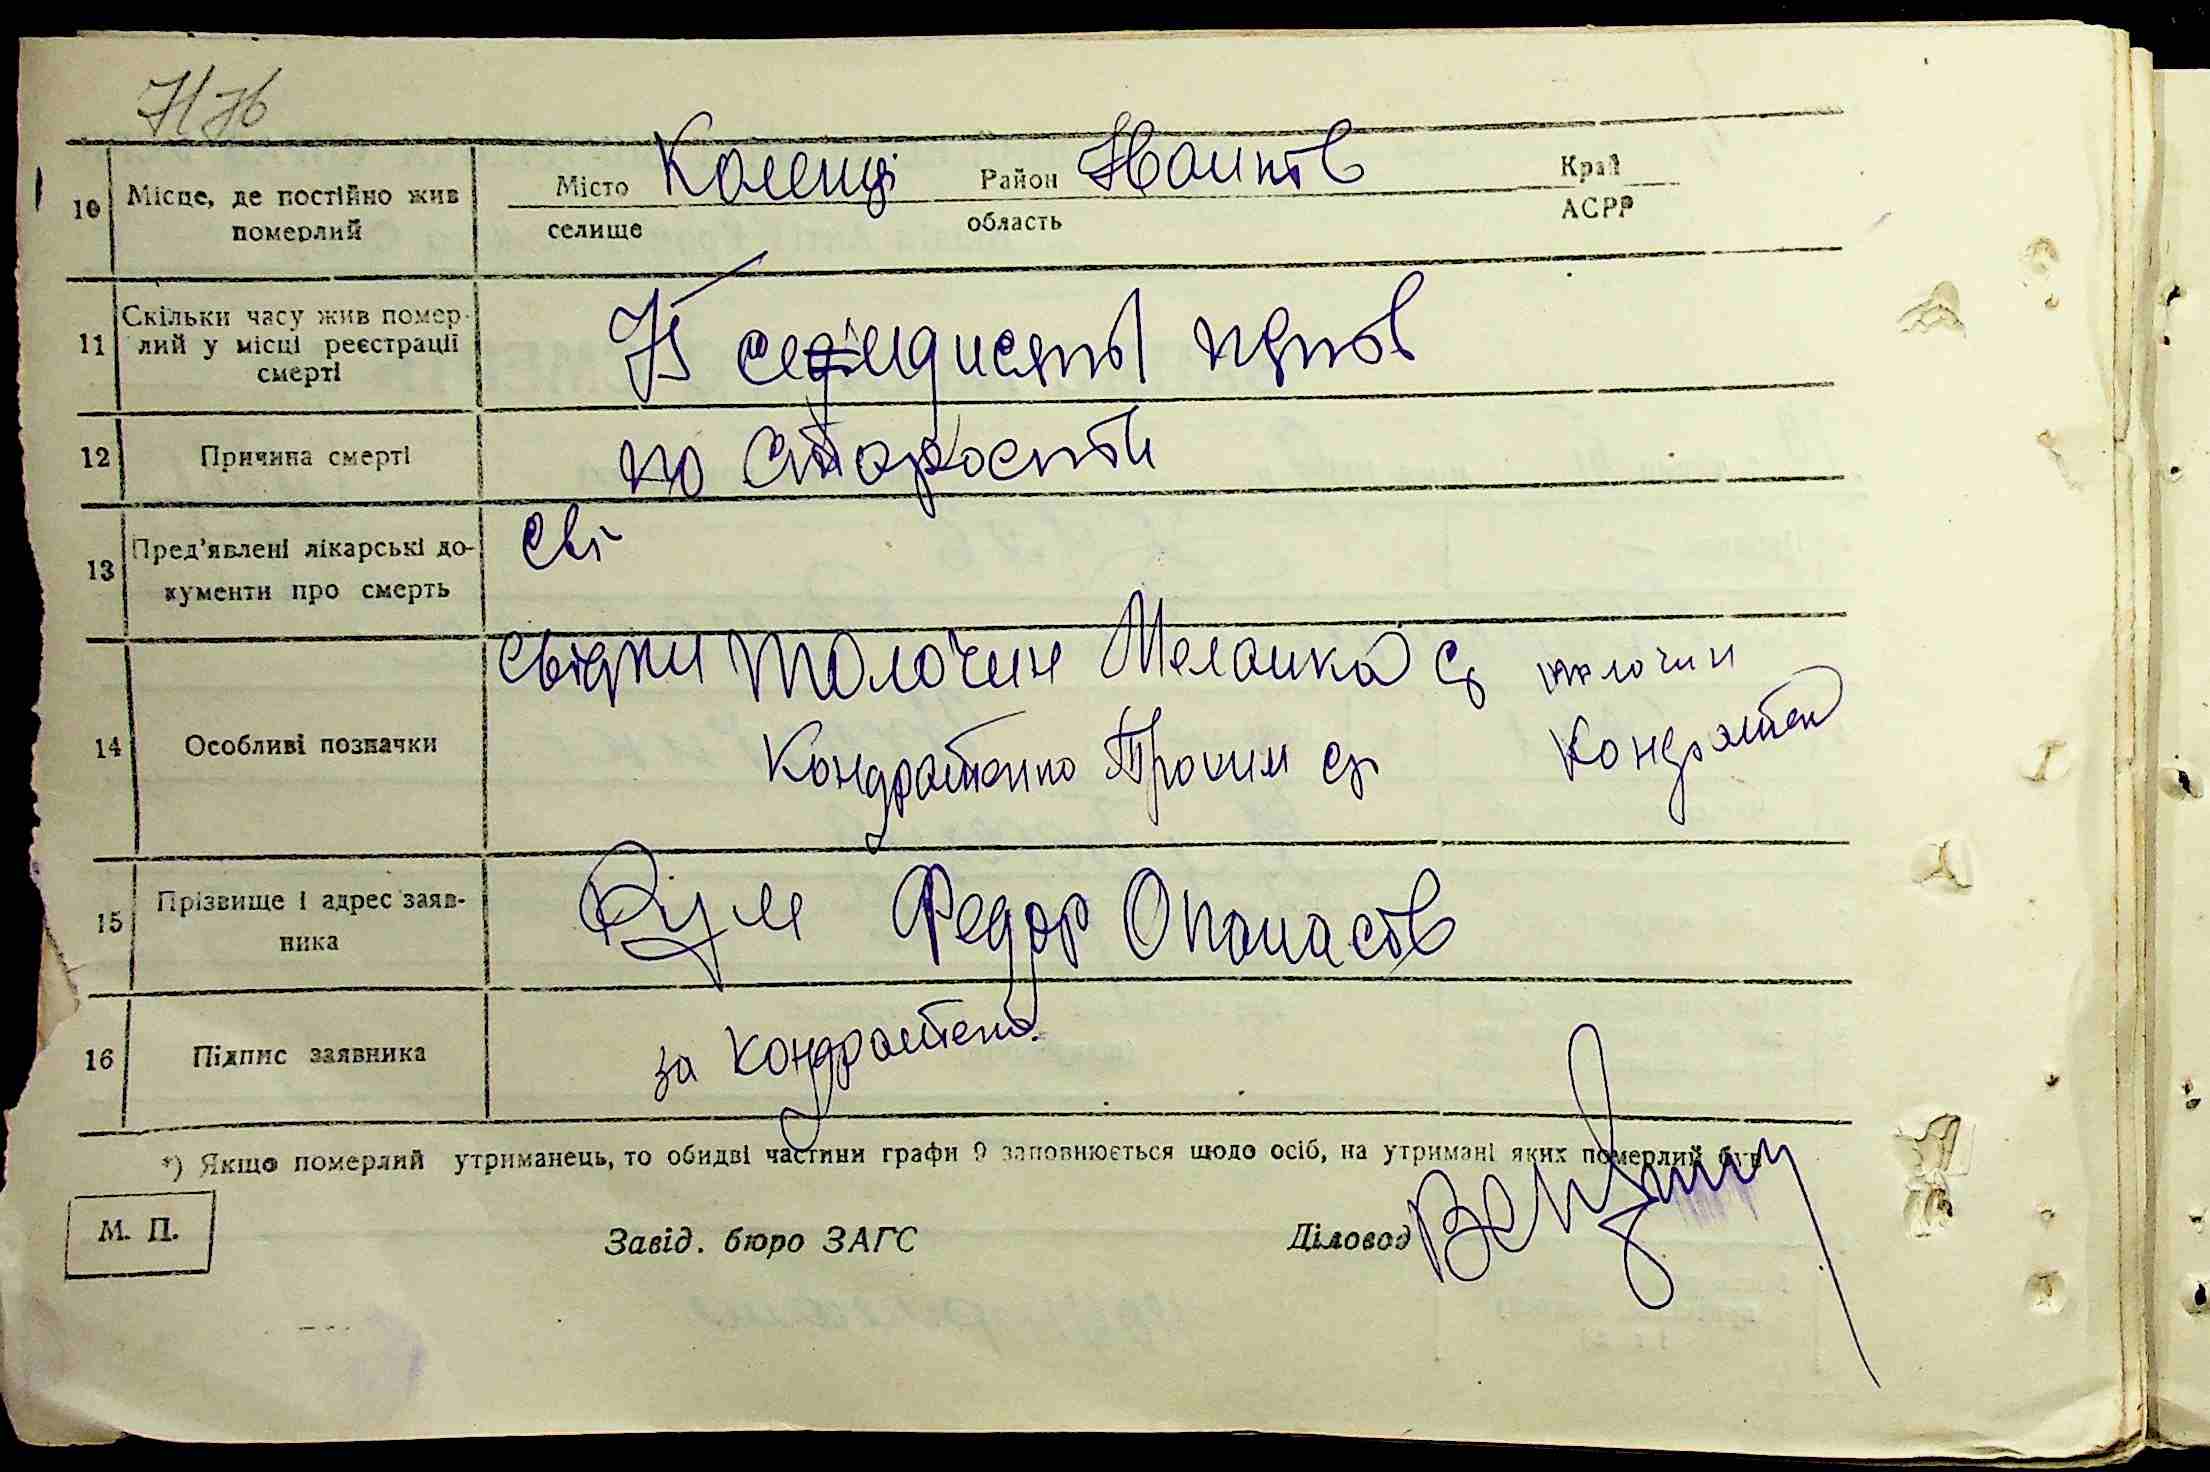 10 Місце, де постійно жив померлий
Місто Коленці Район Іванків Край
селище область АСРР
11 Скільки часу жив померлий у місці реєстрації смерті
75 семдисят пятов
12 Причина смерті
по старости
13 Пред'явлені лікарські документи про смерть
Сві
14 Особливі позначки
свідки Толочин Меланка С толочин
Кондратенко Трохим Кондратен
15 Прізвище і адрес заявника
Федор Опанасов
16 Підпис заявника
за Кондратенк
*) Якщо померлий утриманець, то обидві частини графи 9 заповнюється щодо осіб, на утримані яких померлий був
М. П.
Завід. бюро ЗАГС Діловод